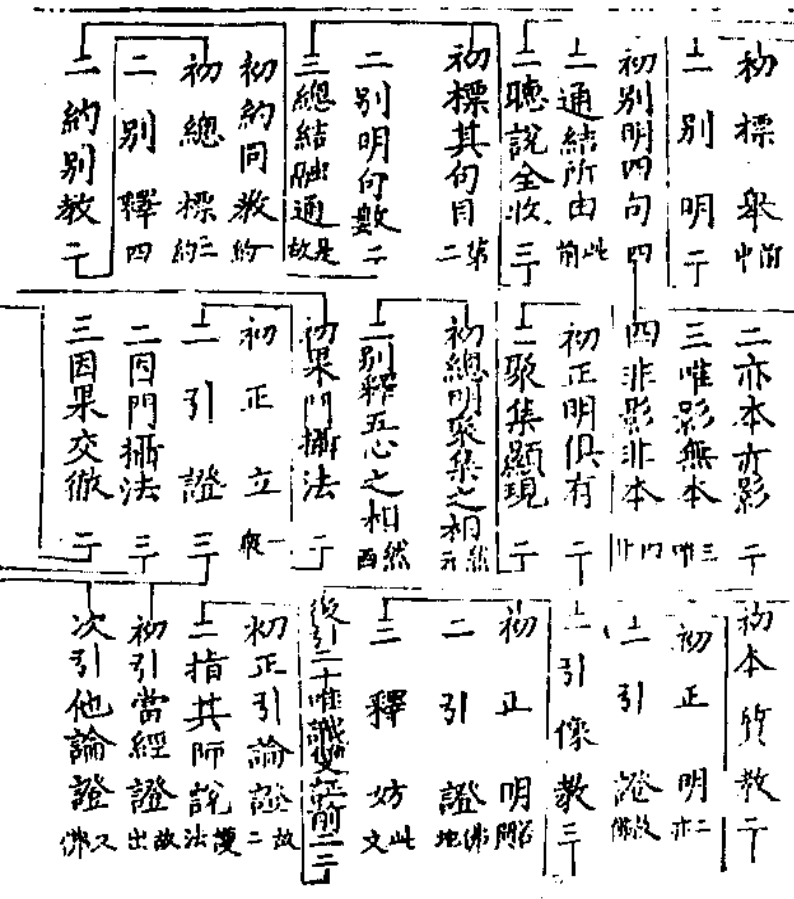 初標舉
二別明二
初別明四句四
二通結所由此前
二聽說全收三
初標其句目第二
二別明句數二
三總結融通是故
初約同教約一
初總標約三
二別釋四
二約別教二
二亦本亦影二
三唯影無本三唯
四非影非本四非
初正明俱有二
二聚集顯現二
初總明聚集之相
二別釋五心之相然西
初果門攝法二
初正立一
二引證三
二因門攝法三
三因果交徹二
初本質教二
初正明二亦
二引證故佛
二引像教三
初正明
二引證佛地
三釋妨此文
後引二十唯識 前二二
初正引論證故二
二指其師說護法
初引當經證故出
次引他論證又佛